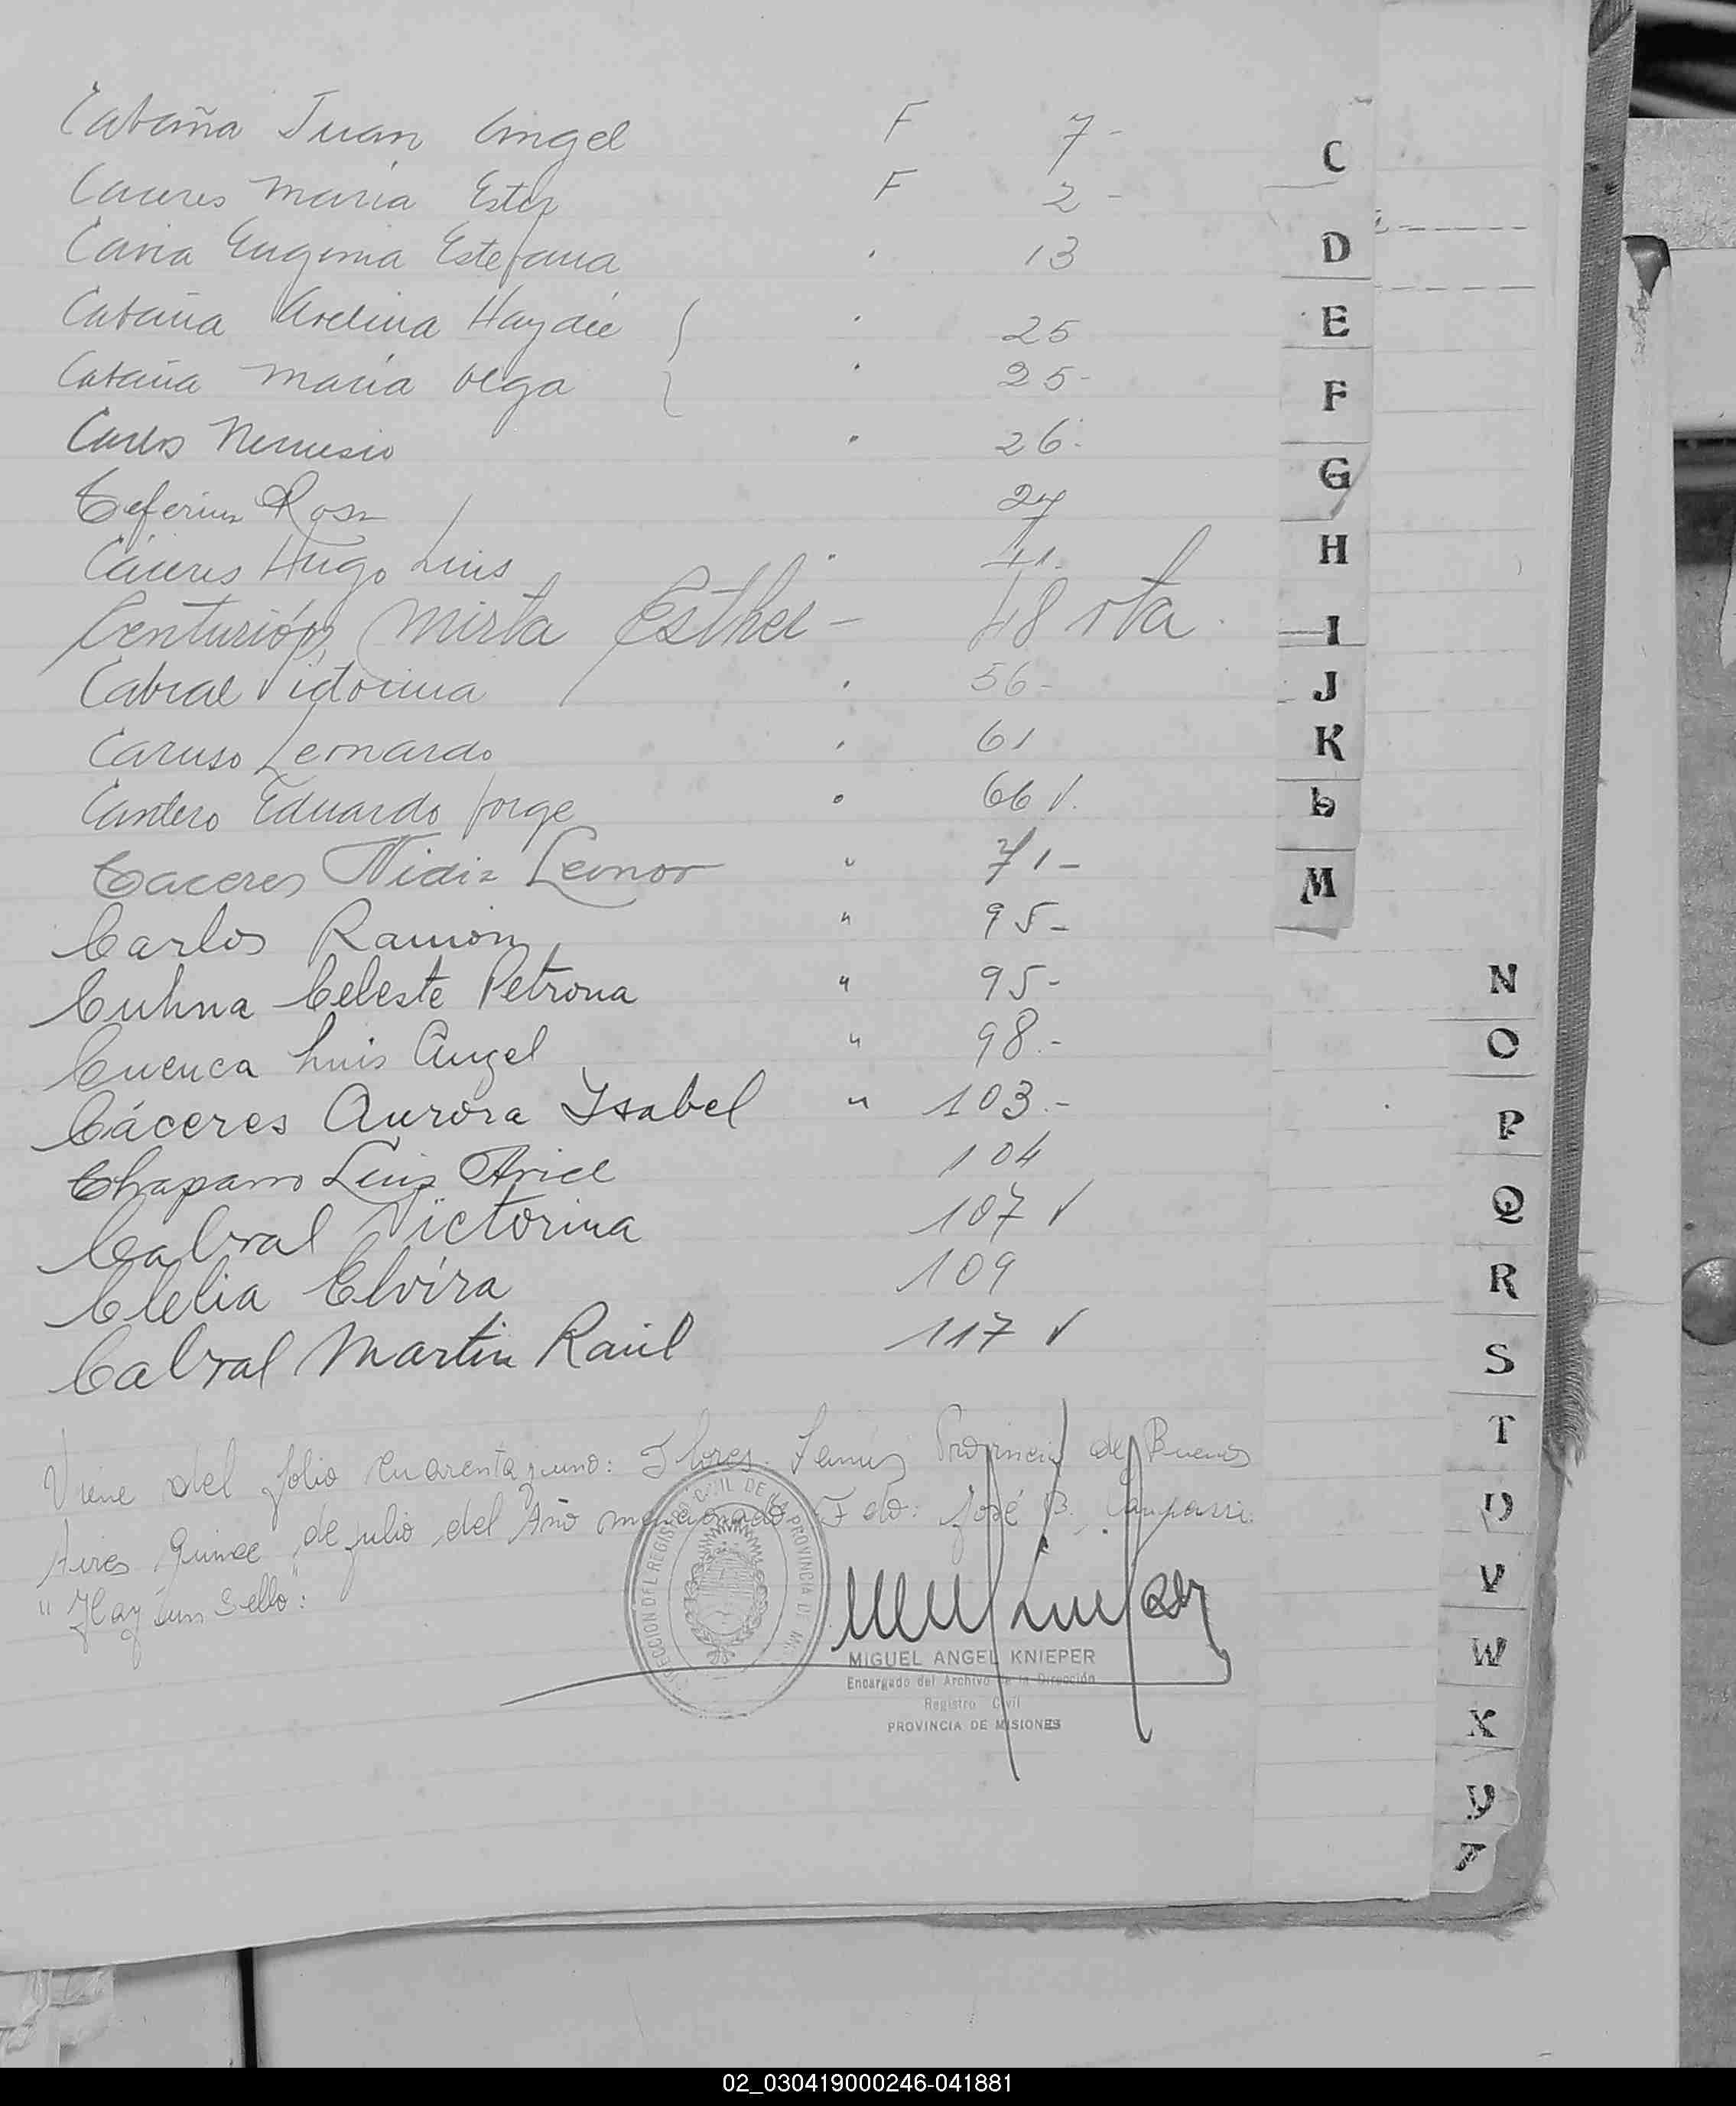 Cabaña Juan Angel F 7-
Caceres Maria Ester F 2-
Cavia Eugenia Estefana . 13
Cabaña Avelina Haydée . 25
Cabaña Maria Olga . 25-
Carlos Nemesio " 26-
Ceferina Rosa 27
Cáceres Hugo Luis . 41.
Centurión, Mirta Esther - 48 vta.
Cabral Victorina . 56-
Caruso Leonardo . 61
Cantero Eduardo Jorge . 66 V.
Caceres Nidia Leonor " 71-
Carlos Ramón " 95-
Cuhna Celeste Petrona " 95-
Cuenca Luis Angel " 98.-
Cáceres Aurora Isabel " 103.-
Chaparro Luis Ariel 104
Cabral Victorina 107 V
Clelia Elvira 109
Cabral Martin Raúl 117 V
Viene del folio cuarenta y uno: Flores. Provincia de Buenos
Aires Quince de julio del Año mencionado Fdo: José B.
"Hay un Sello":
DIRECCION DEL REGISTRO CIVIL DE LA PROVINCIA DE
MIGUEL ANGEL KNIEPER
Encargado del Archivo de la Dirección
Registro Civil
PROVINCIA DE MISIONES
C
D
E
F
G
H
I
J
K
L
M
N
O
P
Q
R
S
T
U
V
W
X
Y
Z
02_030419000246-041881